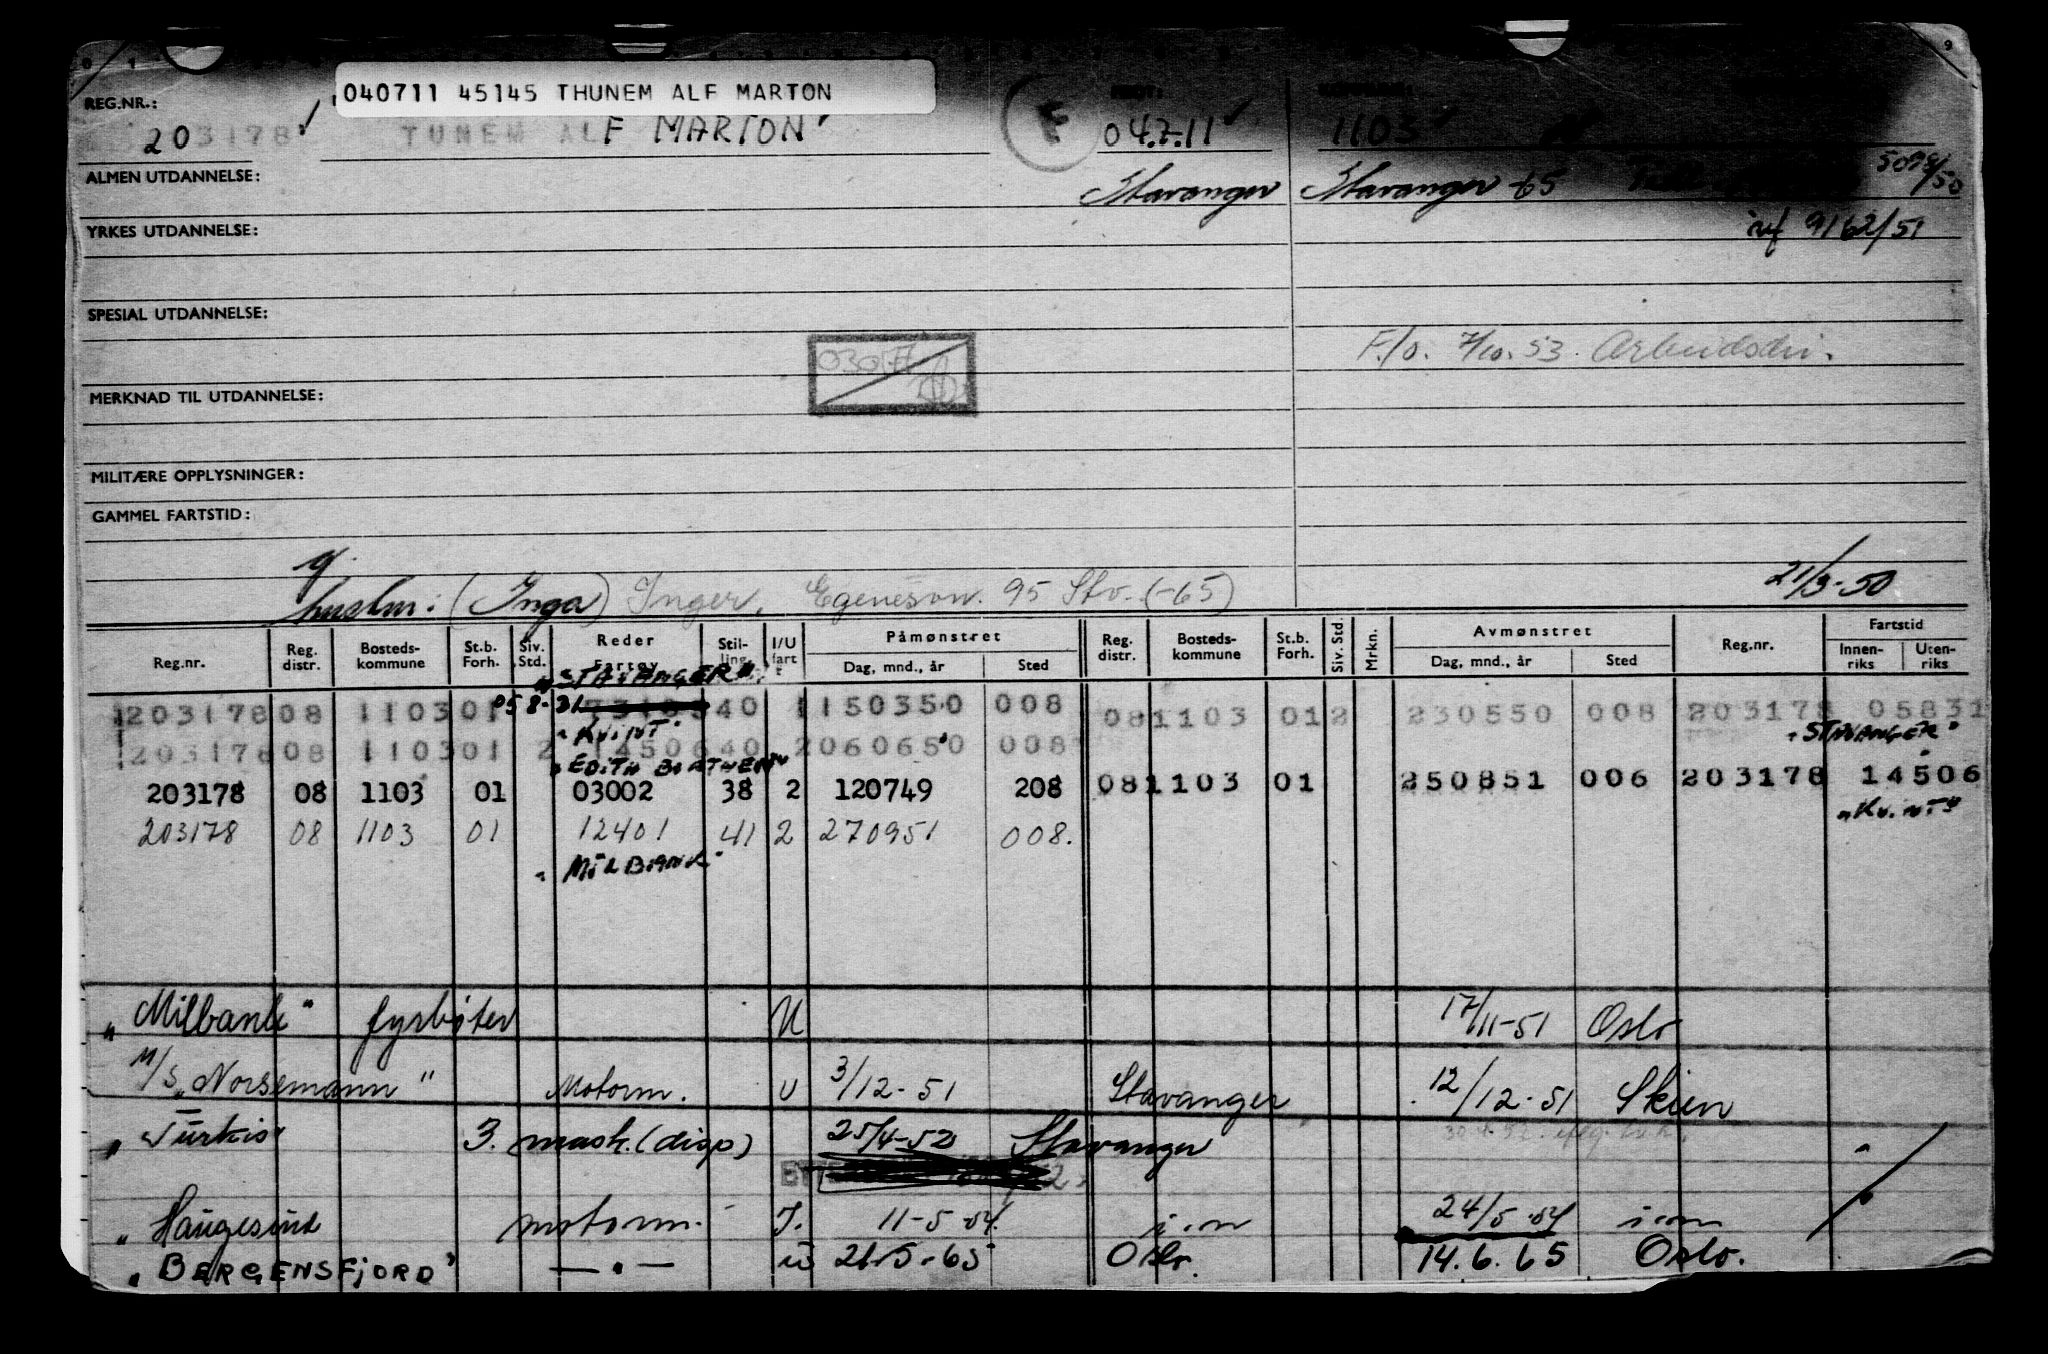 040711 45145 THUNEM ALF MARTON
REG.NR.:
203178 TUNEM ALF MARTON F 04.7.11 1103
ALMEN UTDANNELSE: Stavanger Stavanger -65
YRKES UTDANNELSE: 9162/51
SPESIAL UTDANNELSE:
F./o. 7/10. 53. Arbeidsdir.
MERKNAD TIL UTDANNELSE:
MILITÆRE OPPLYSNINGER:
GAMMEL FARTSTID:
g/
hustru: (Inga) Inger, Egenesvn. 95 Stv. (-65) 21/3-50
Reg.nr. Reg. distr. Bosteds-kommune St.b. Forh. Siv. Std. Reder Fartøy Stil-ling I/U fart Påmønstret Dag, mnd., år Sted Reg. distr. Bosteds-kommune St.b. Forh. Siv. Std. Mrkn. Avmønstret Dag, mnd., år Sted Reg.nr. Fartstid Innen-riks Uten-riks
"STAVANGER"
203178 08 1103 01 058-31 40 1 150350 008 08 1103 01 2 230550 008 203178 05831
"Kvint" "STAVANGER"
203178 08 1103 01 2 14506 40 2 060650 008
"EDITH BORTHEN" 08 1103 01 250851 006 203178 14506
203178 08 1103 01 03002 38 2 120749 208
"Kvint"
203178 08 1103 01 12401 41 2 270951 008.
"MILBANK"
"Milbank" fyrbøter U 17/11-51 Oslo
M/S "Norsemann" Motorm. U 3/12-51 Stavanger 12/12-51 Skien
"Turkis" 3. mask. (disp) 25/4-52 Stavanger
"Haugesund motorm. I. 11-5.54. i-m 24/5.54 i-m
"BERGENSFJORD" — . — U 21.5.65 Oslo. 14.6.65 Oslo.